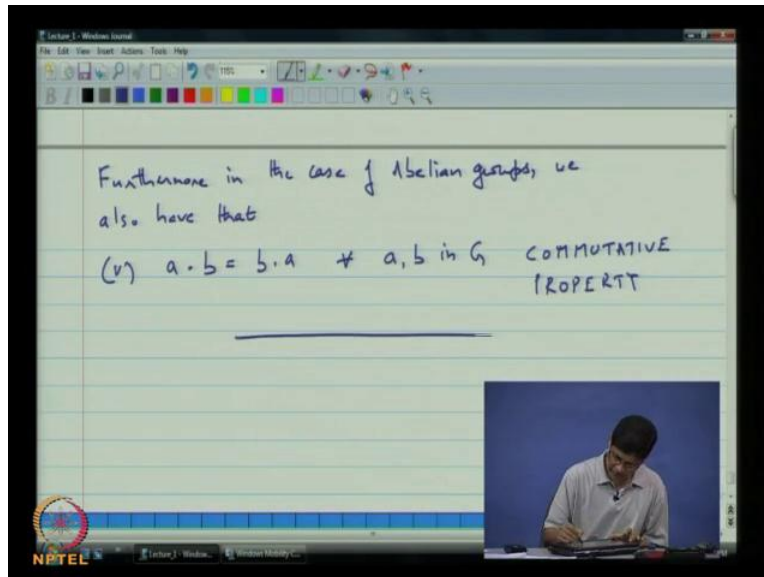 Lecture_1 - Windows Journal
File Edit View Insert Actions Tools Help
115%
B I
Furthermore in the case of Abelian groups, we
also have that
(v) a . b = b . a ∀ a, b in G COMMUTATIVE
PROPERTY
NPTEL
Lecture_1 - Window...
Windows Mobility C...
PM